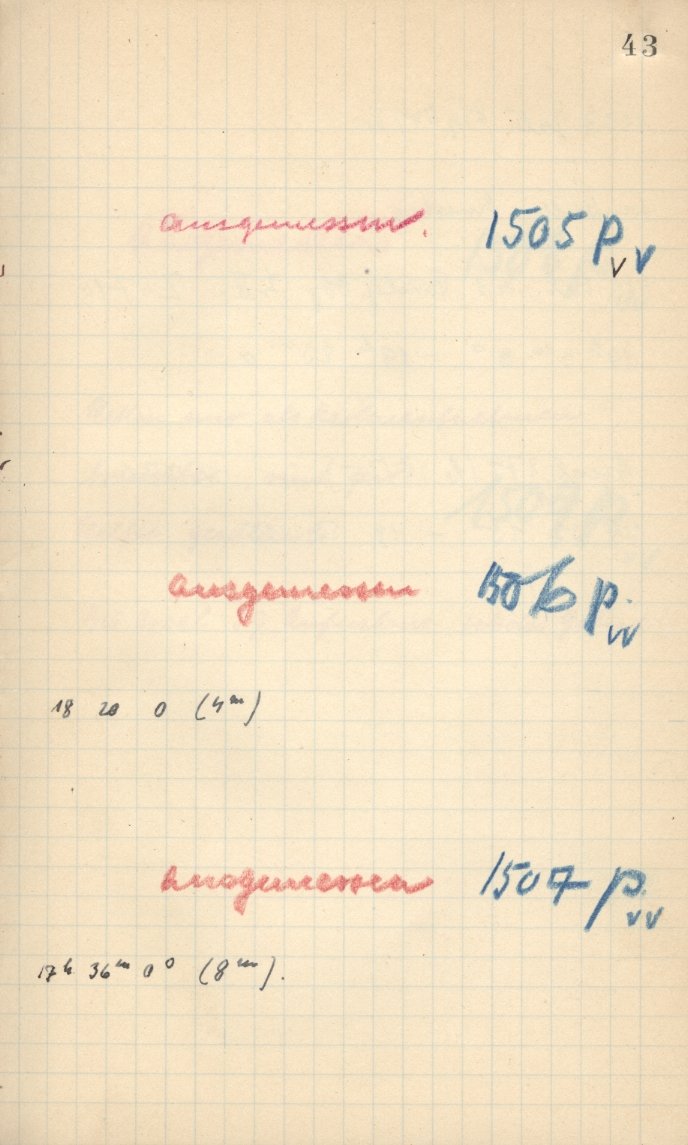 43
ausgemessen. 1505 p v v
ausgemessen 1506 p. v v
18 20 0 (4ᵐ)
Ausgemessen 1507 p. v v
17ʰ 36ᵐ 0⁰ (8ᵐ).